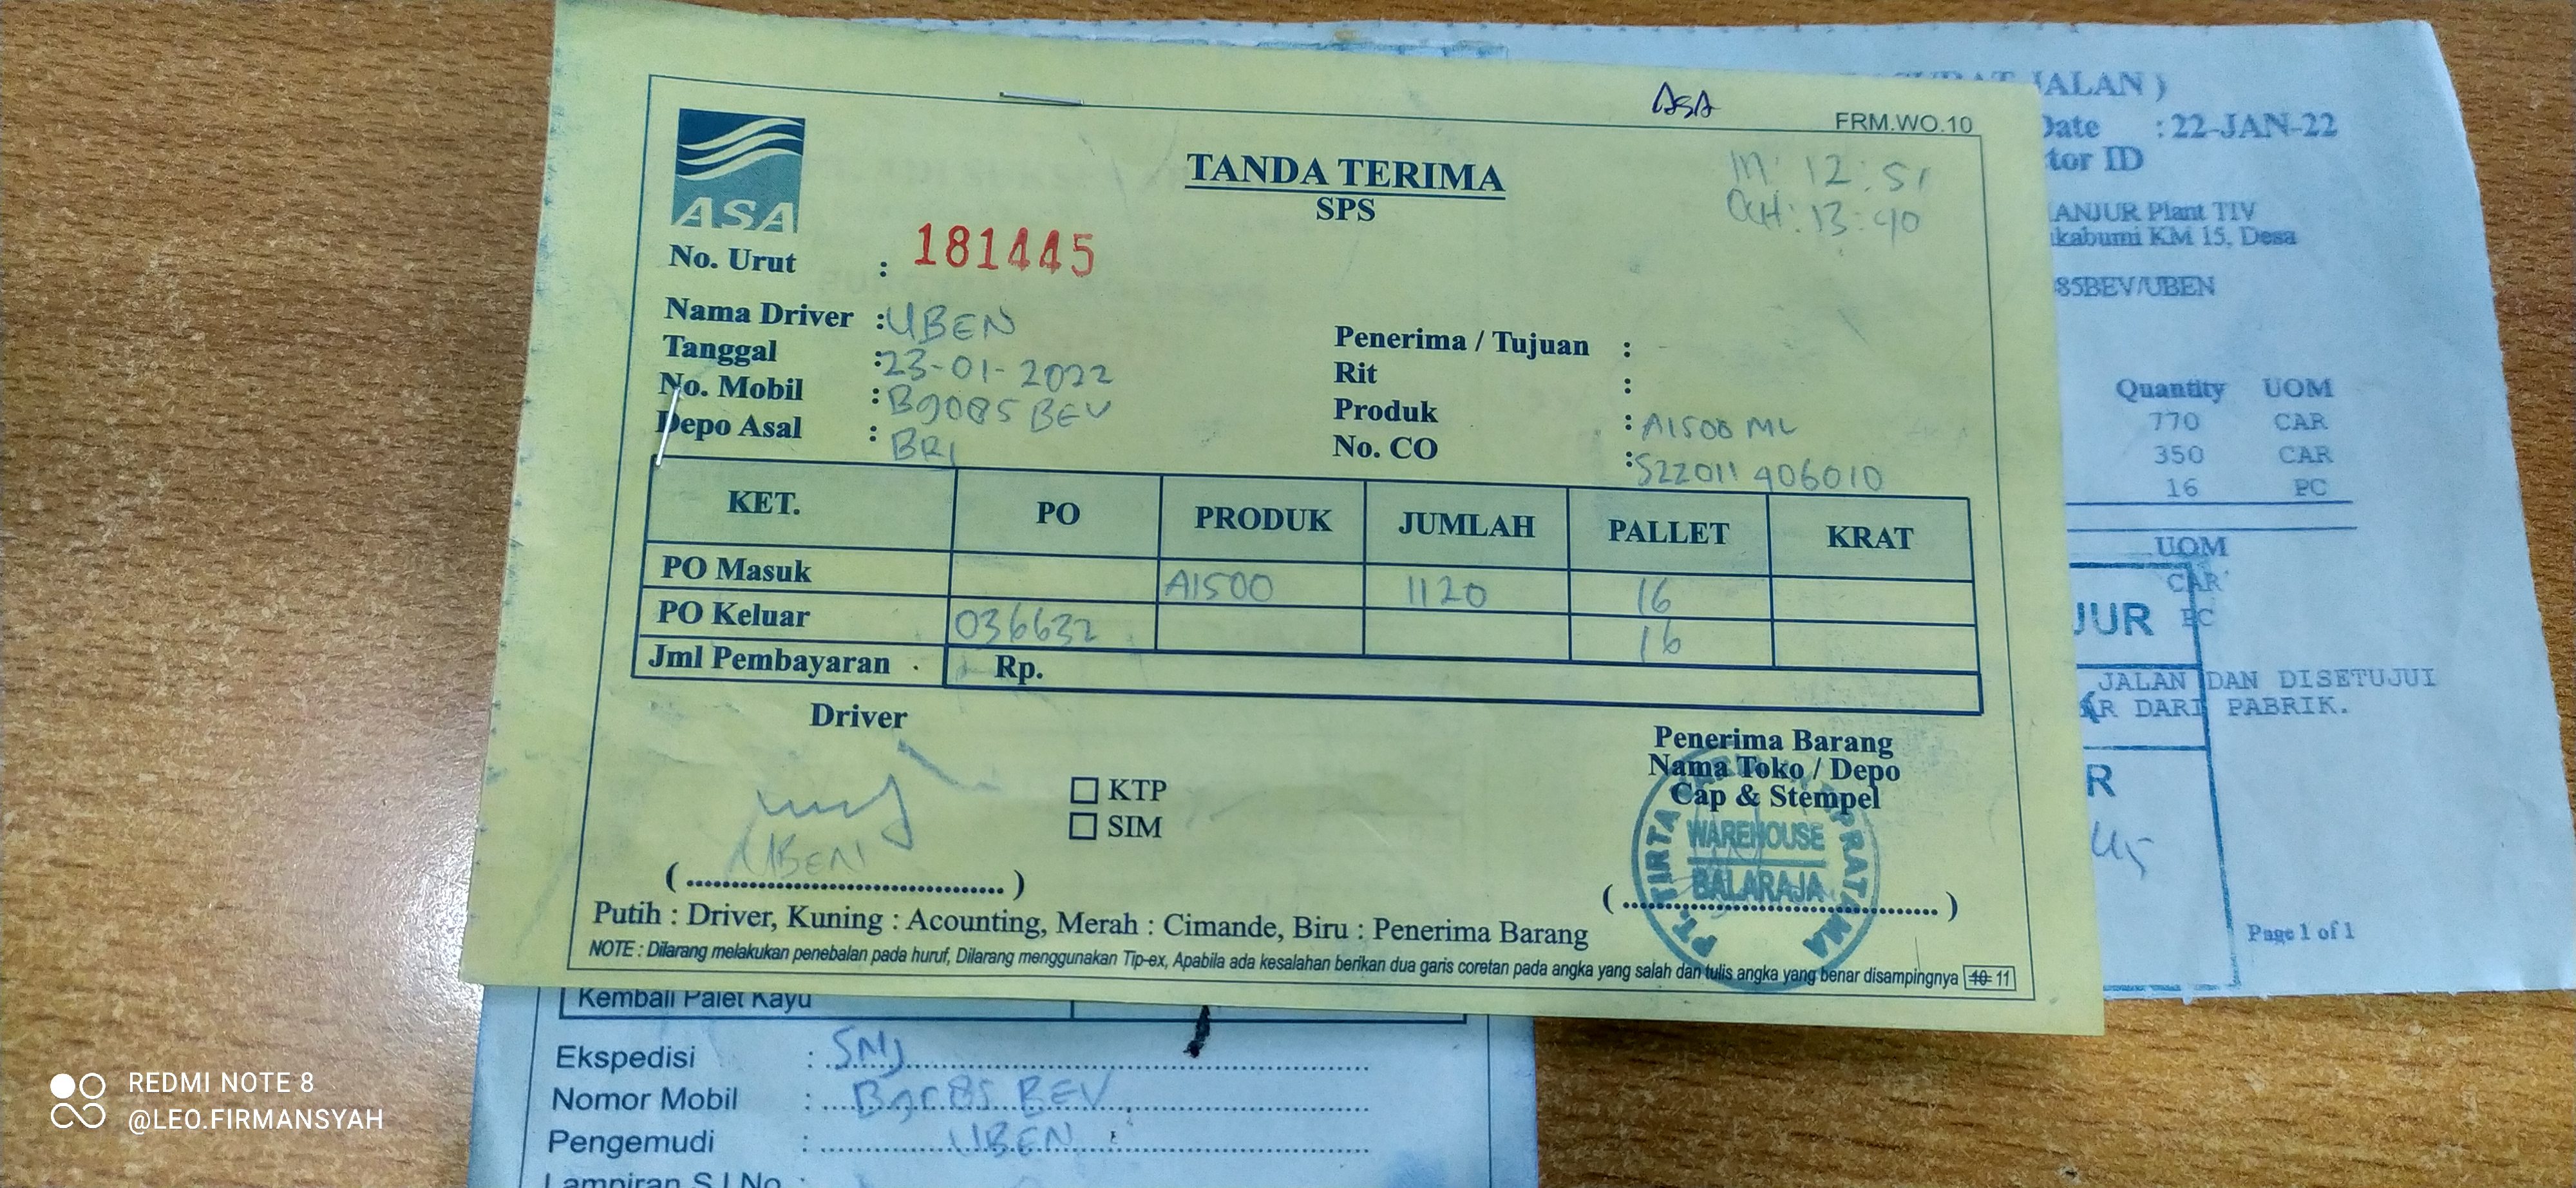 ASA
FRM.WO.10
ASA
TANDA TERIMA
SPS
In: 12:51
Out: 13:40
No. Urut : 181445
Nama Driver : UBEN
Tanggal : 23-01-2022
No. Mobil : B9085 BEV
Depo Asal : BRI
Penerima / Tujuan :
Rit :
Produk : A1500 ML
No. CO : S22011406010
KET. PO PRODUK JUMLAH PALLET KRAT
PO Masuk A1500 1120 16
PO Keluar 036632 16
Jml Pembayaran Rp.
Driver
UBEN
(........................................)
KTP
SIM
Penerima Barang
Nama Toko / Depo
Cap & Stempel
PT. TIRTA PRATAMA
WAREHOUSE
BALARAJA
(........................................)
Putih : Driver, Kuning : Acounting, Merah : Cimande, Biru : Penerima Barang
NOTE : Dilarang melakukan penebalan pada huruf, Dilarang menggunakan Tip-ex, Apabila ada kesalahan berikan dua garis coretan pada angka yang salah dan tulis angka yang benar disampingnya 10 11
JALAN )
Date : 22-JAN-22
tor ID
ANJUR Plant TIV
kabumi KM 15, Desa
85BEV/UBEN
Quantity UOM
770 CAR
350 CAR
16 PC
UOM
CAR
PC
JUR
JALAN DAN DISETUJUI
AR DARI PABRIK.
R
45
Page 1 of 1
Kembali Palet Kayu
Ekspedisi : SNJ
Nomor Mobil : B9085 BEV
Pengemudi : UBEN
Lampiran SJ No :
REDMI NOTE 8
@LEO.FIRMANSYAH